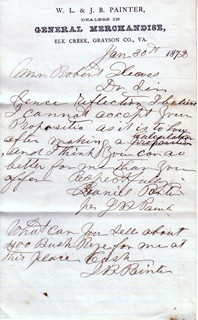 W. L. & J. B. PAINTER,
DEALERS IN
GENERAL MERCHANDISE,
ELK CREEK, GRAYSON CO., VA.
Jan 30th 187
Robert
Dr Sir
Reflection I
I cannot accept your
Proposition as it is to
after making a calculation
and I think you can do
better for me than your
offer Respectfully
Daniel
per J B Painter
What can you sell about
400 Bush Rye for me at
this place Cash
J B Painter